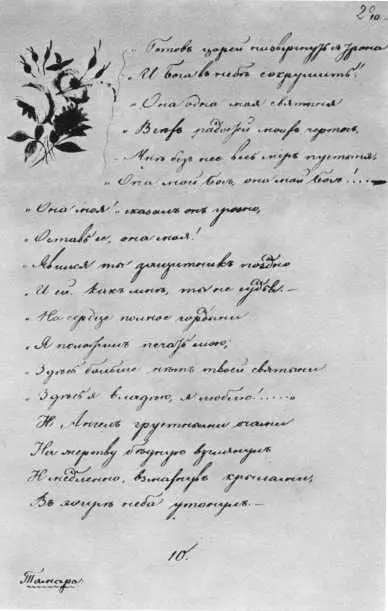 29
„ Готовъ царей низвергнуть я трона
„ И Бога въ небѣ сокрушить!
„ Она одна моя святыня
„ Всѣхъ радостей моихъ чертогъ,
„ Мнѣ безъ нее весь міръ пустыня,
„ Она мой Богъ, она мой Богъ!....
„ Она моя! сказалъ онъ грозно,
„ Оставь ее, она моя!
„ Явился ты защитникъ поздно
„ И ей какъ мнѣ, ты не судья. —
„ На сердце полное гордыни
„ Я положилъ печать мою,
„ Здѣсь больше нѣтъ твоей святыни
„ Здѣсь я владѣю, я люблю!.....„
И Ангелъ грустными очами
На жертву бѣдную взглянулъ
И медленно, взмахнувъ крылами,
Въ эѳирѣ неба утонулъ. —
10.
Тамара.